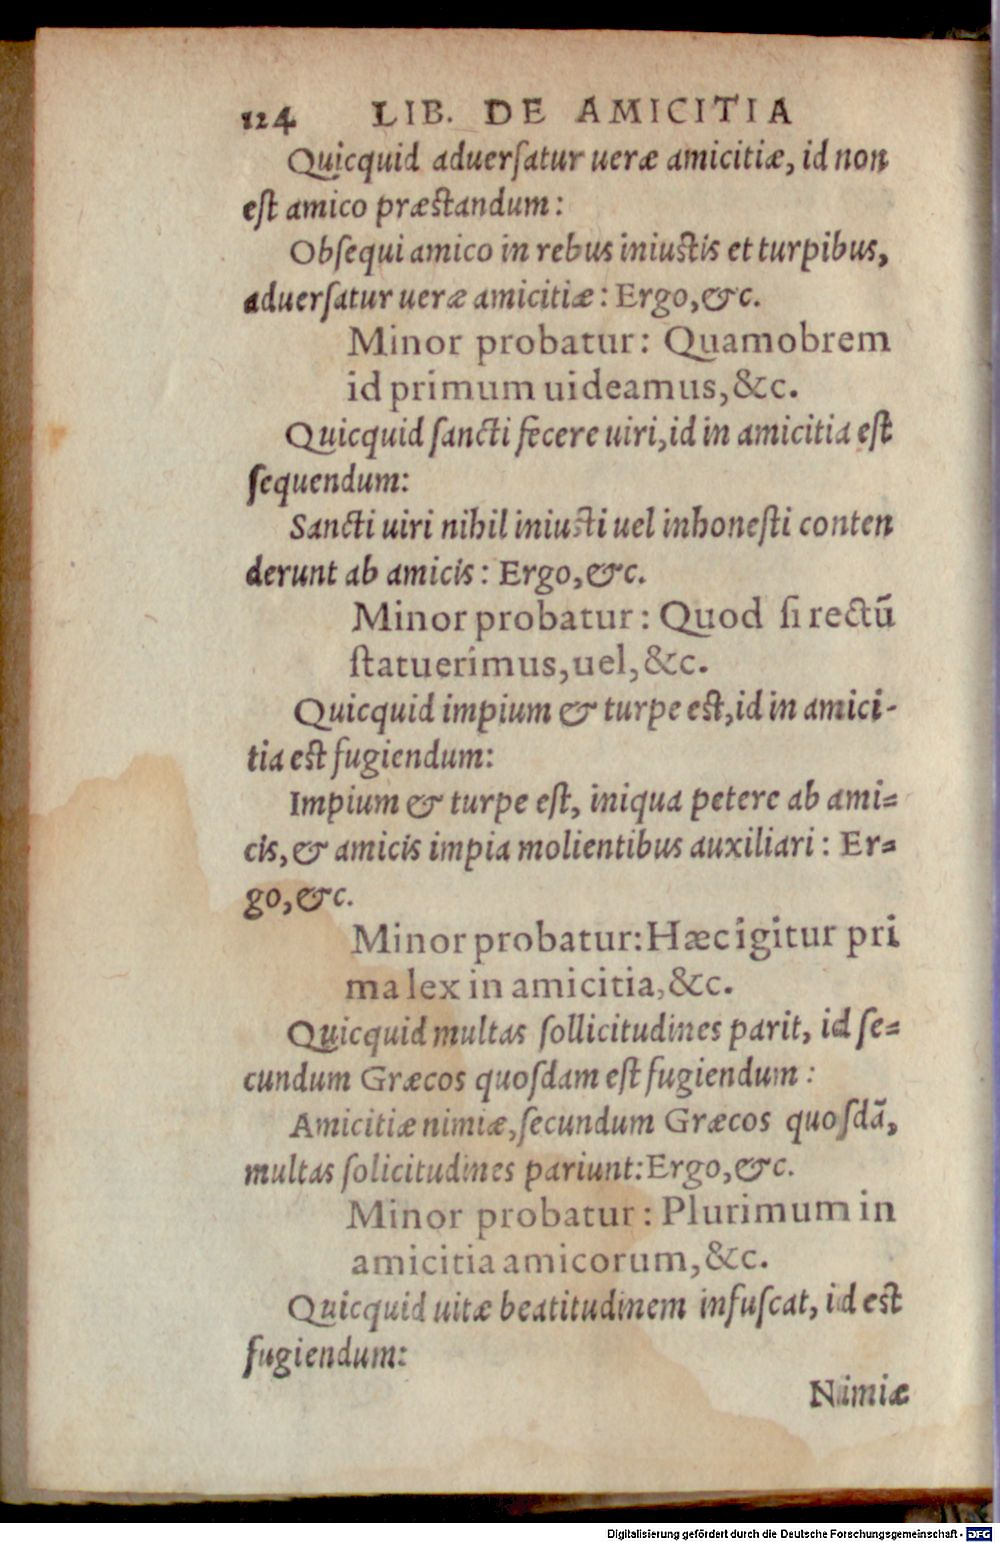 124 LIB. DE AMICITIA
Quicquid aduerſatur ueræ amicitiæ, id non
eſt amico præſtandum:
Obſequi amico in rebus iniuſtis et turpibus,
aduerſatur ueræ amicitiæ: Ergo, &c.
Minor probatur: Quamobrem
id primum uideamus, &c.
Quicquid ſancti fecere uiri, id in amicitia eſt
ſequendum:
Sancti uiri nihil iniuſti uel inhoneſti conten
derunt ab amicis: Ergo, &c.
Minor probatur: Quod ſi rectū
ſtatuerimus, uel, &c.
Quicquid impium & turpe eſt, id in amici-
tia eſt fugiendum:
Impium & turpe eſt, iniqua petere ab ami=
cis, & amicis impia molientibus auxiliari: Er=
go, &c.
Minor probatur: Hæc igitur pri
ma lex in amicitia, &c.
Quicquid multas ſollicitudines parit, id ſe=
cundum Græcos quoſdam eſt fugiendum:
Amicitiæ nimiæ, ſecundum Græcos quoſdā,
multas ſolicitudines pariunt: Ergo, &c.
Minor probatur: Plurimum in
amicitia amicorum, &c.
Quicquid uitæ beatitudinem infuſcat, id eſt
fugiendum:
Nimiæ
Digitalisierung gefördert durch die Deutsche Forschungsgemeinschaft - DFG